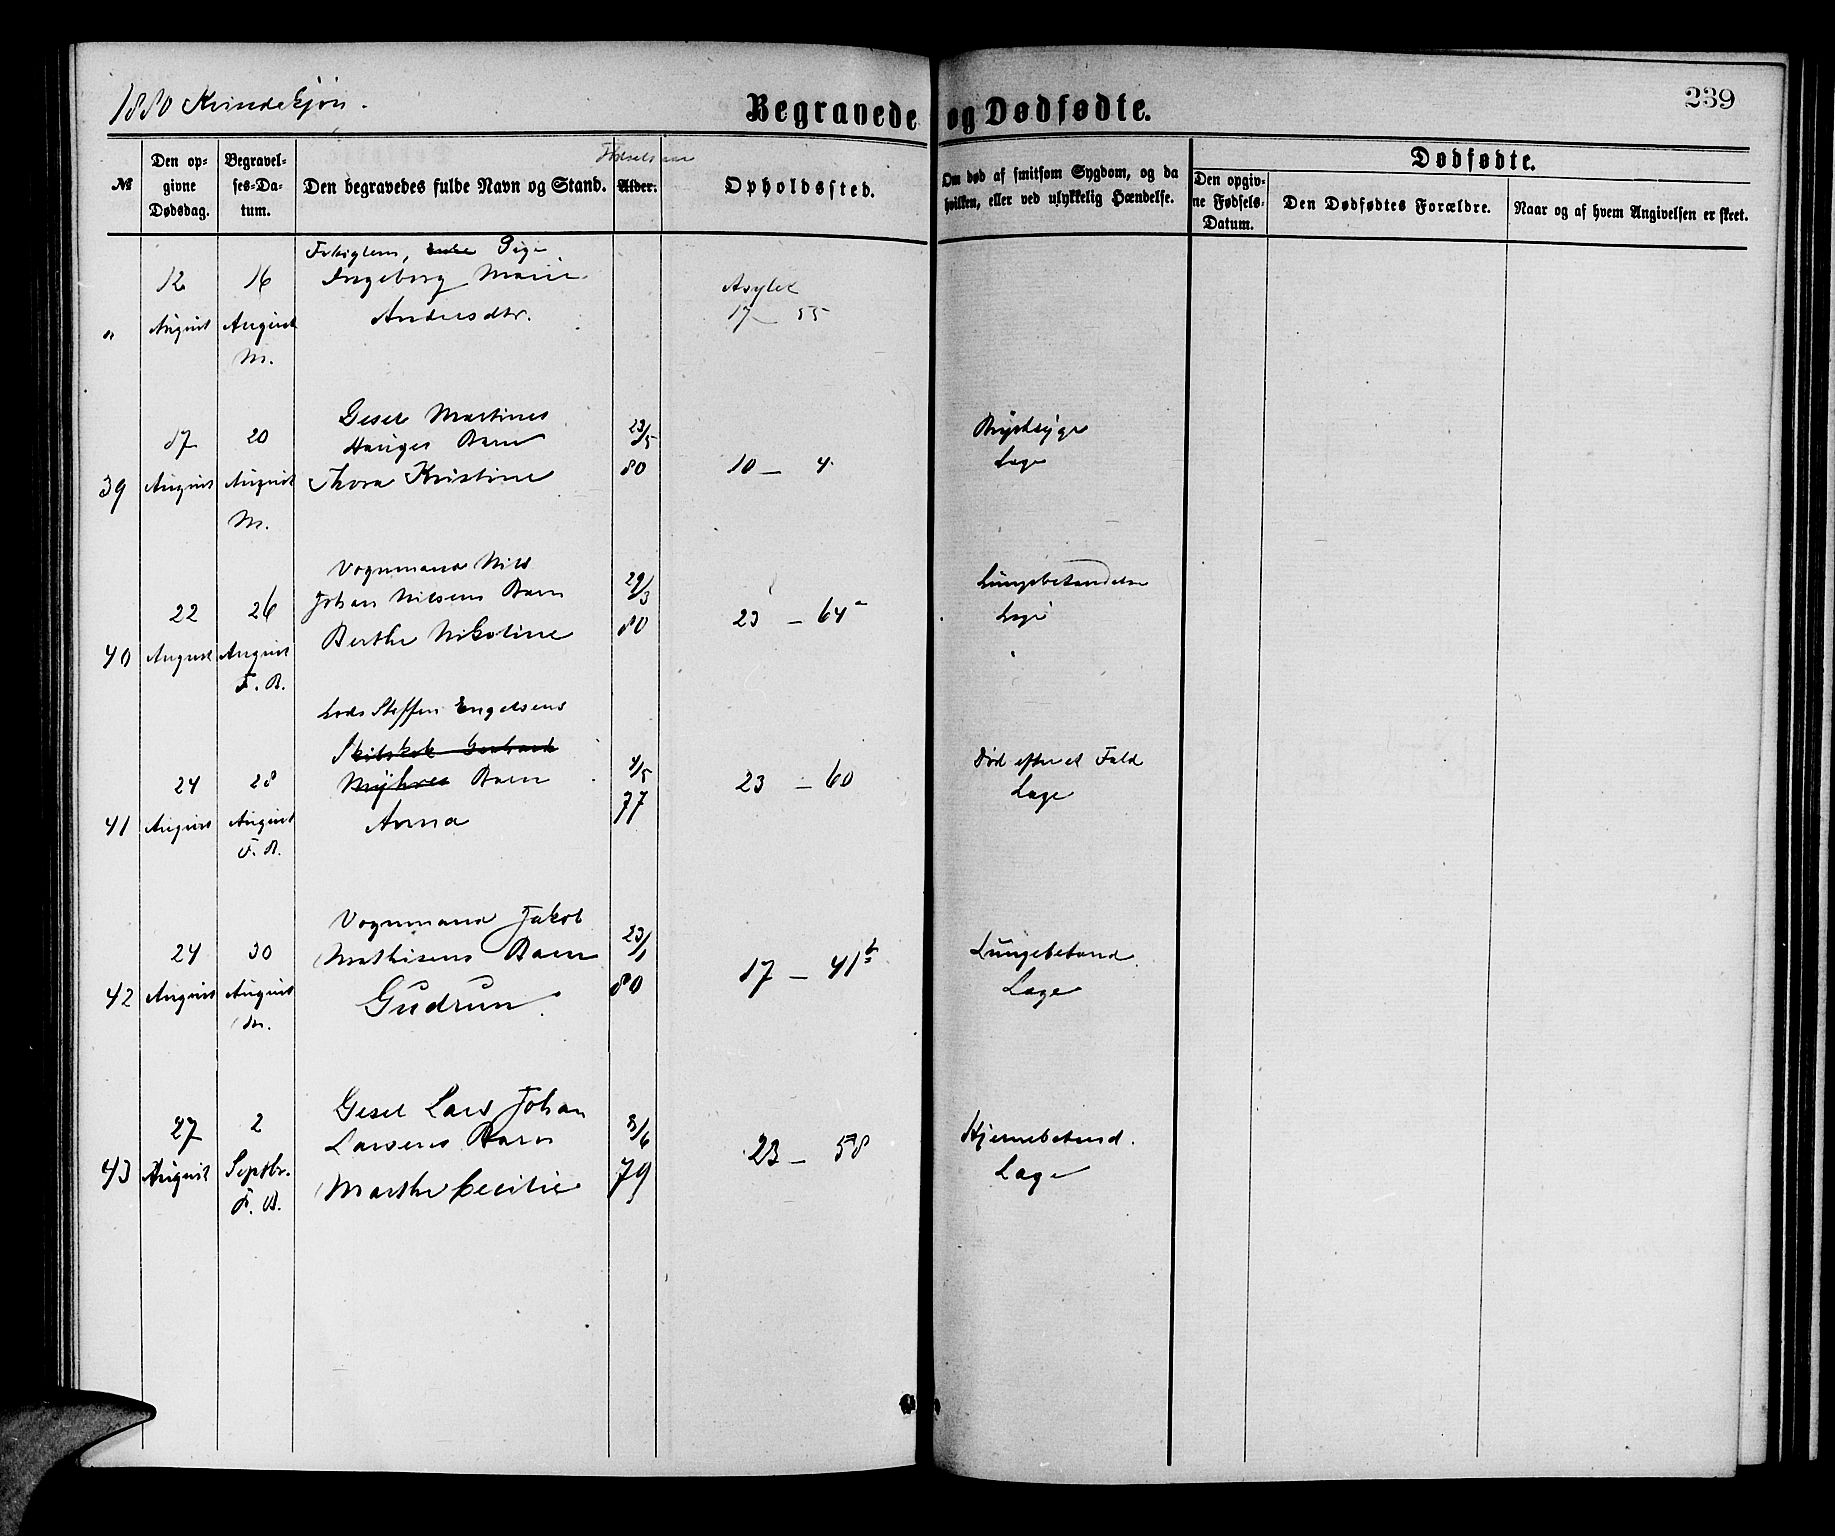 1880 Kvindekjøn.
Begravede og Dødfødte.
239
№
Den opgivne Dødsdag.
Begravelses-Datum.
Den begravedes fulde Navn og Stand.
Fødselsaar
Alder.
Opholdssted.
Om død af smitsom Sygdom, og da hvilken, eller ved ulykkelig Hændelse.
Dødfødte.
Den opgivne Fødsels-Datum.
Den Dødfødtes Forældre.
Naar og af hvem Angivelsen er skeet.
Pige
12 16 Ingeborg Marie Asylet
" August August Andersdtr. 17 55
M.
Gesel Martines
17 20 Hauges Barn 23/5 Brystsyge
39 August August Thora Kristine 80 10 — 4 Læge
M.
Vognmand Nils
22 26 Johan Nilsens Barn 29/3 Lungebetændelse
40 August August Berthe Nikoline 80 23 — 64 Læge
F. B.
Lods Steffen Engelsens
24 28 Barn 4/5 23 — 60 Død efter et Fald
41 August August Anna 77 Læge
F. B.
Vognmand Jakob
24 30 Mathisens Barn 23/1 17 — 41b Lungebetænd.
42 August August Gudrun 80 Læge
M.
Gesel Lars Johan
27 2 Larsens Barn 3/6 23 — 58 Hjernebetænd.
43 August Septbr. Marthe Cecilie 79 Læge
F. B.